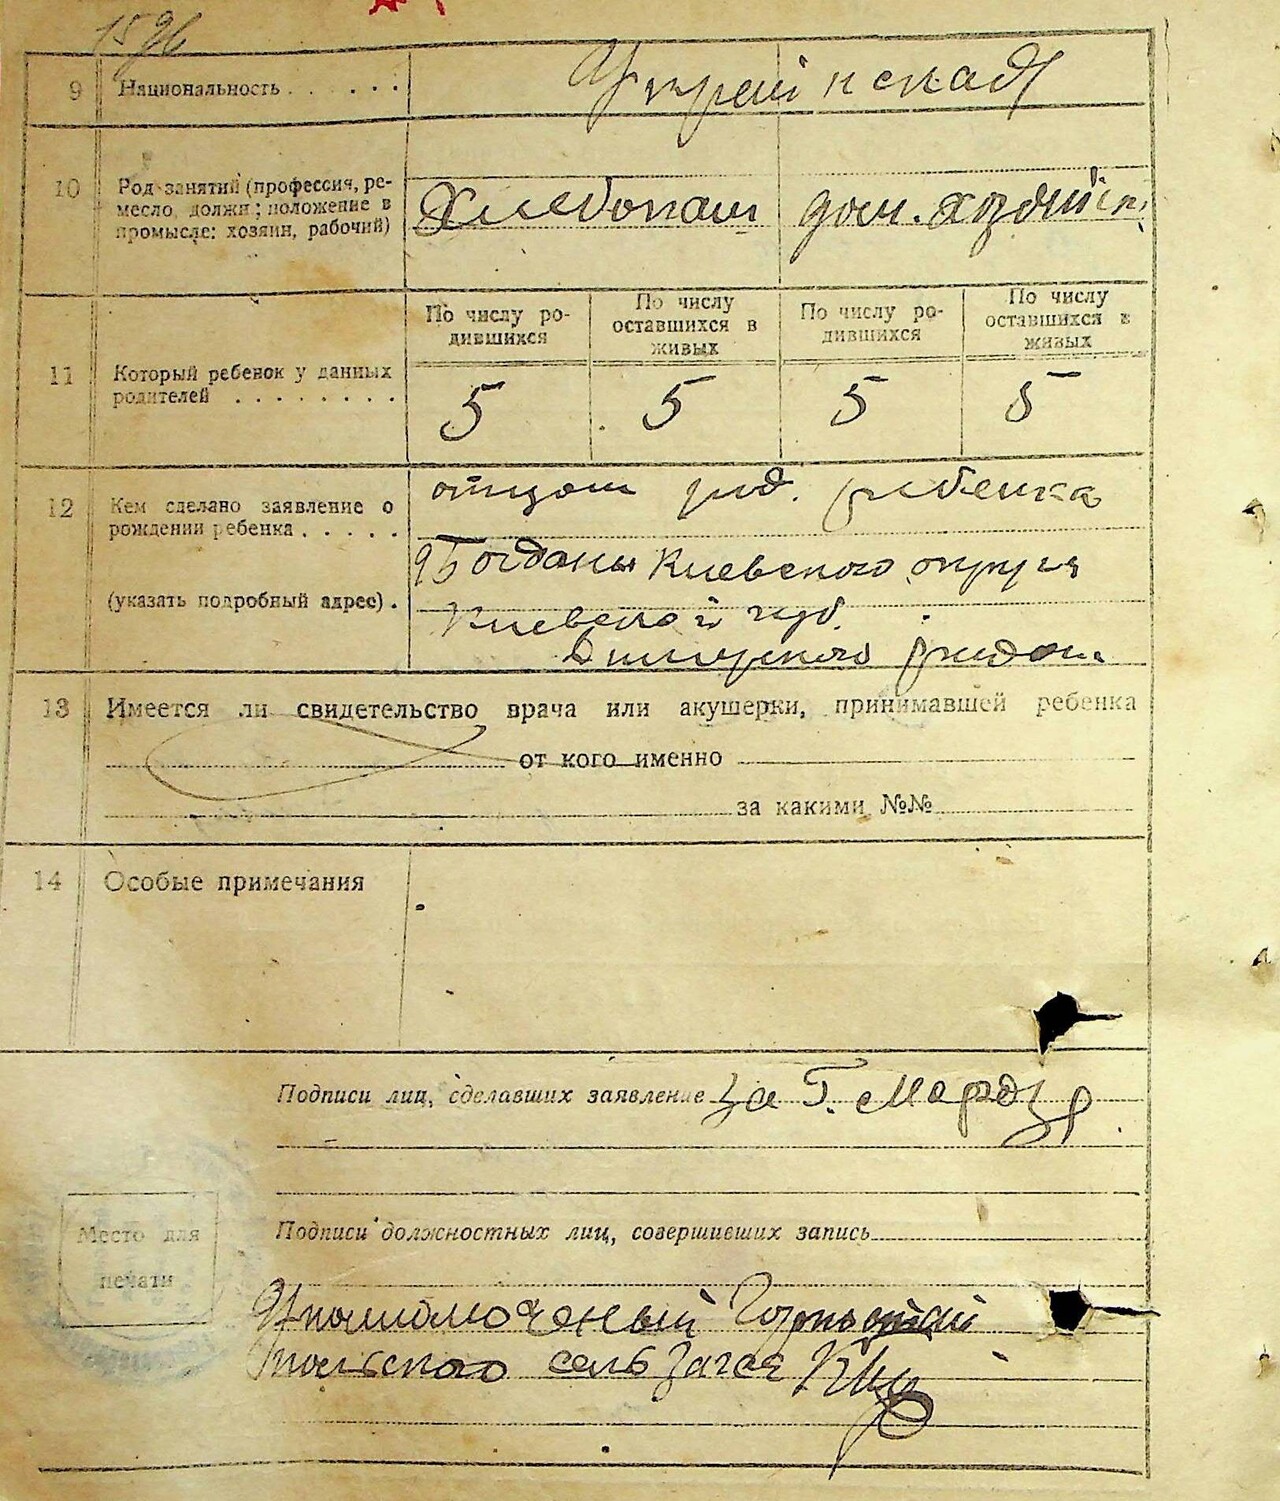 1596
9 Национальность . . . . . . Украінская
10 Род занятий (профессия, ре-
месло, должн; положение в
промысле: хозяин, рабочий)
Хлебопаш дом. хозяйк.
11 Который ребенок у данных
родителей . . . . . . . .
По числу ро-
дившихся
По числу
оставшихся в
живых
По числу ро-
дившихся
По числу
оставшихся в
живых
5 5 5 5
12 Кем сделано заявление о
рождении ребенка . . . . .
(указать подробный адрес) .
отцом ребенка
Богданы Киевского округа
Киевской губ.
района
13 Имеется ли свидетельство врача или акушерки, принимавшей ребенка
от кого именно
за какими №№
14 Особые примечания
Подписи лиц, сделавших заявление за Г.
Место для
печати
Подписи должностных лиц, совершивших запись
сель Загса